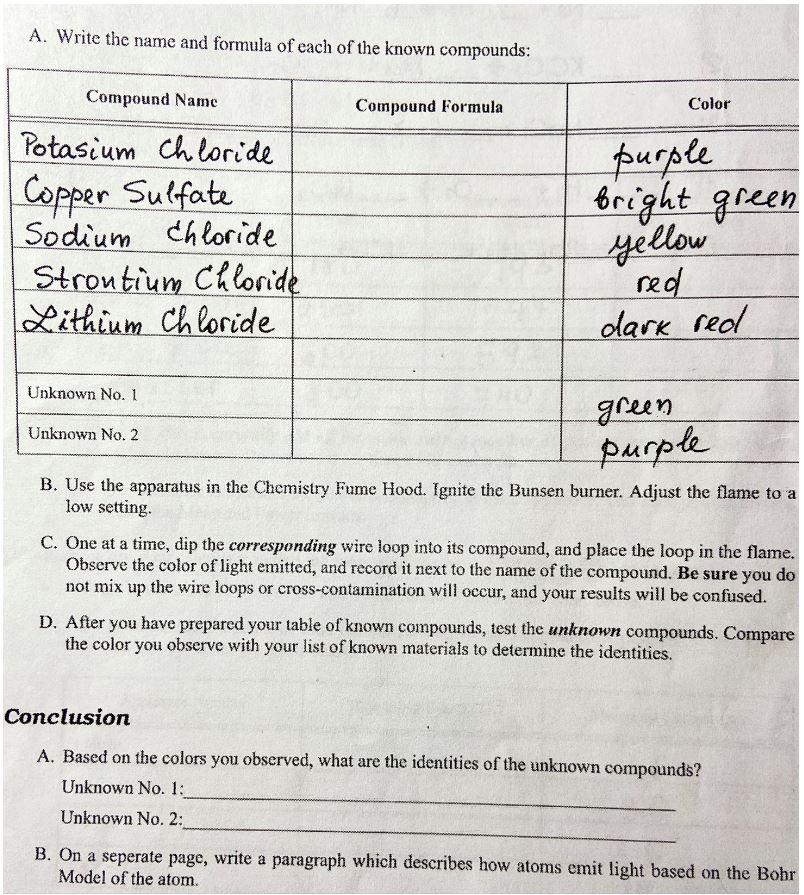 A. Write the name and formula of each of the known compounds:
Compound Name Compound Formula Color
Potasium Chloride purple
Copper Sulfate bright green
Sodium Chloride yellow
Strontium Chloride red
Lithium Chloride dark red
Unknown No. 1 green
Unknown No. 2 purple
B. Use the apparatus in the Chemistry Fume Hood. Ignite the Bunsen burner. Adjust the flame to a
low setting.
C. One at a time, dip the corresponding wire loop into its compound, and place the loop in the flame.
Observe the color of light emitted, and record it next to the name of the compound. Be sure you do
not mix up the wire loops or cross-contamination will occur, and your results will be confused.
D. After you have prepared your table of known compounds, test the unknown compounds. Compare
the color you observe with your list of known materials to determine the identities.
Conclusion
A. Based on the colors you observed, what are the identities of the unknown compounds?
Unknown No. 1:
Unknown No. 2:
B. On a seperate page, write a paragraph which describes how atoms emit light based on the Bohr
Model of the atom.